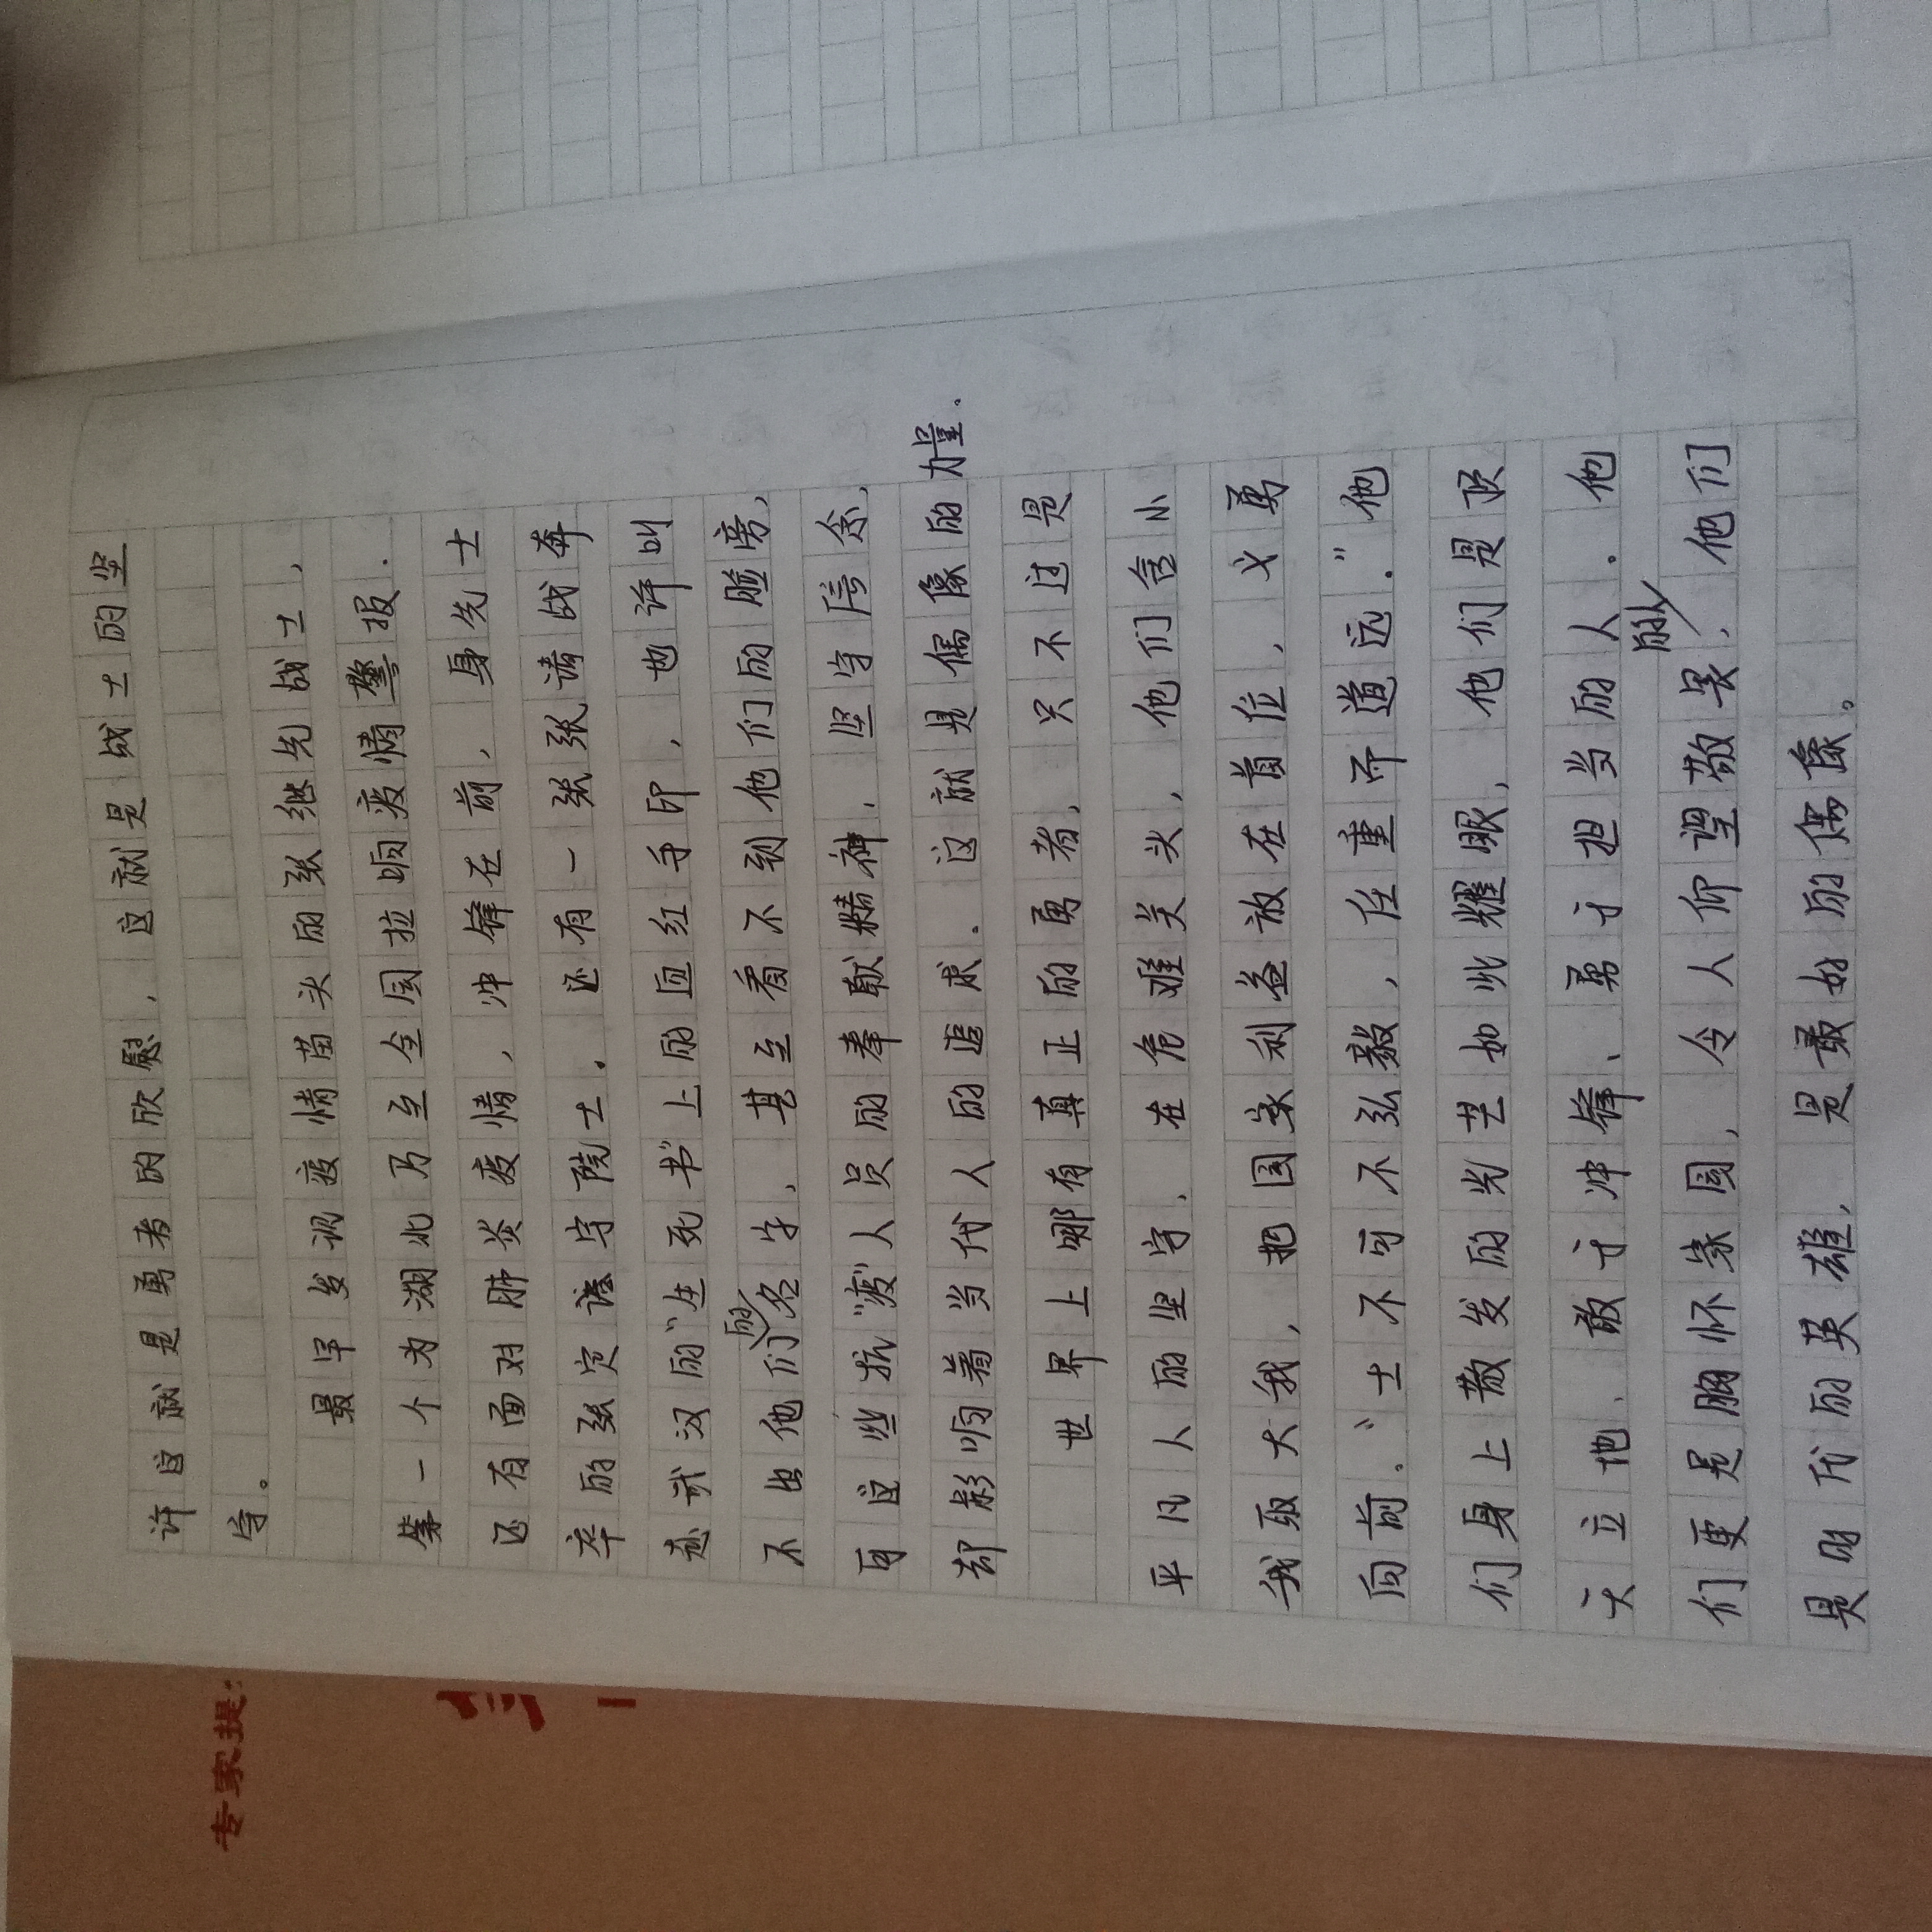 许这就是勇者的欣慰，这就是战士的坚
守。
最早发现疫情苗头的张继先战士，
第一个为湖北乃至全国拉响疫情警报.
还有面对肺炎疫情，冲锋在前，身先士
卒的张定谨守院士.还有一张张请战奔
赴武汉的"生死书"上的血红手印，也许叫
不出他们的名字，甚至看不到他们的脸旁，
可这些抗"疫"人员的奉献精神，坚守信念，
却影响着当代人的追求.这就是偶像的力量.
世界上哪有真正的勇者，只不过是
平凡人的坚守，在危难关头，他们舍小
我取大我，把国家利益放在首位，义勇
向前."士不可不弘毅，任重而道远."他
们身上散发的光芒如此耀眼，他们是顶
天立地、敢于冲锋、勇于担当的人.他
们更是胸怀家国，令人仰望敬畏的，他们
是时代的英雄，是最好的偶像。
专家提: